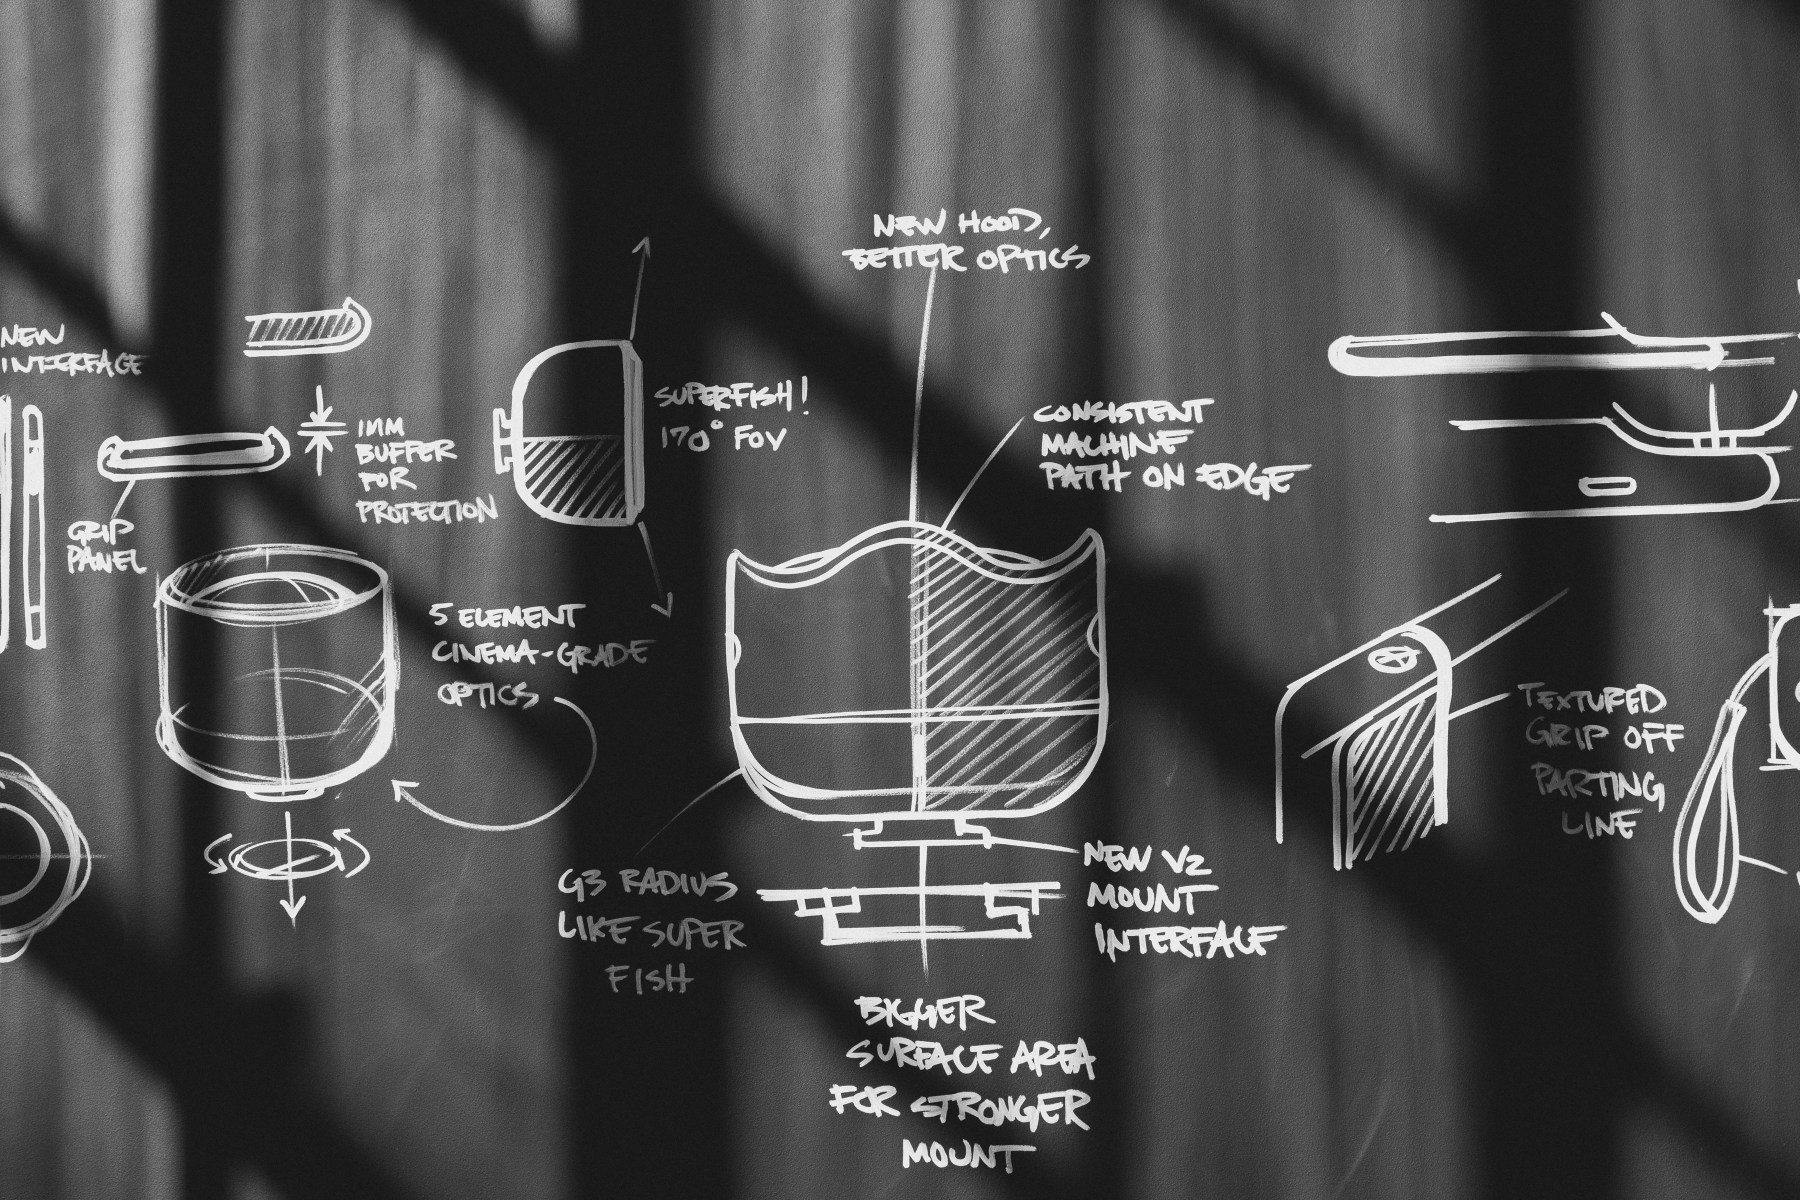 NEW HOOD,
BETTER OPTICS
NEW
INTERFACE
1MM
BUFFER
FOR
PROTECTION
SUPERFISH!
170° FOV
CONSISTENT
MACHINE
PATH ON EDGE
GRIP
PANEL
5 ELEMENT
CINEMA-GRADE
OPTICS
TEXTURED
GRIP OFF
PARTING
LINE
G3 RADIUS
LIKE SUPER
FISH
NEW V2
MOUNT
INTERFACE
BIGGER
SURFACE AREA
FOR STRONGER
MOUNT